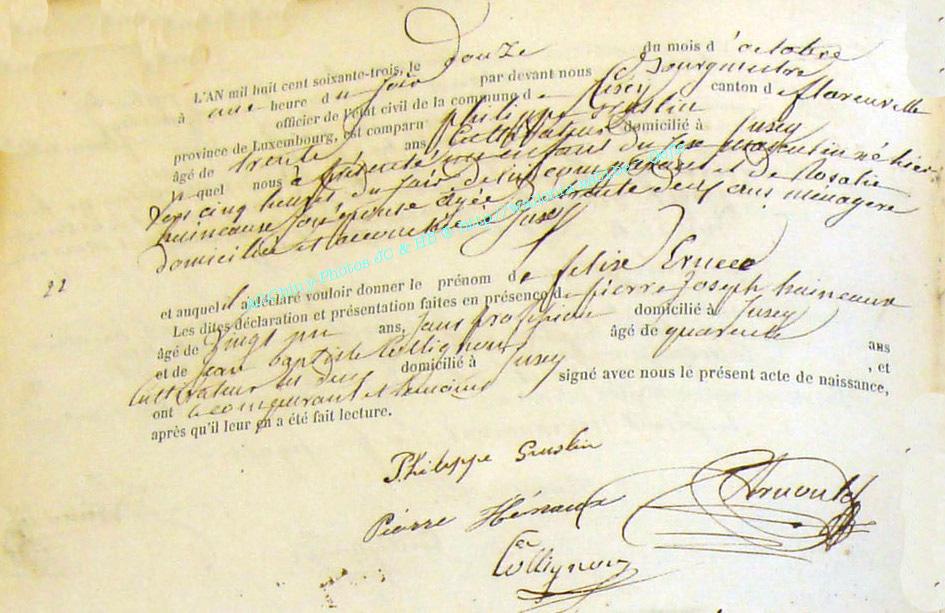 L'AN mil huit cent soixante-trois, le douze du mois d'octobre
à une heure du soir par devant nous Bourgmestre
officier de l'état civil de la commune de Jusey canton de florenville
province de Luxembourg, est comparu philippe Gustin
âgé de trente ans Cultivateur domicilié à Jusey
lequel nous à présenté un enfant du sexe masculin né hier
vers cinq heures du soir de lui comparant et de Rosalie
haineaux son épouse agée de trente deux ans ménagère
domiciliée et accouchée à Jusey
McGhiny-Photos JC & HB
22
et auquel il a déclaré vouloir donner le prénom de felix
Les dites déclaration et présentation faites en présence de pierre Joseph haineaux
âgé de vingt un ans, sans profession domicilié à Jusey
et de jean baptiste Collignon âgé de quarante ans
cultivateur les deux domicilié à Jusey , et
ont le comparant et témoins signé avec nous le présent acte de naissance,
après qu'il leur en a été fait lecture.
Philippe Gustin
Pierre Hénaux
Collignon
Arnould